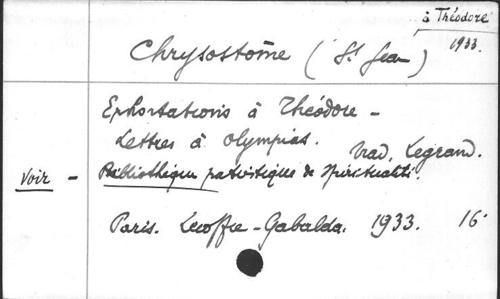 à Théodore
1933.
Chrysostôme (St Jean)
Exhortations à Théodore -
Lettres à Olympias.
trad. Legrand.
Voir - Bibliothèque patristique de Spiritualité.
Paris. Lecoffre-Gabalda. 1933. 16°